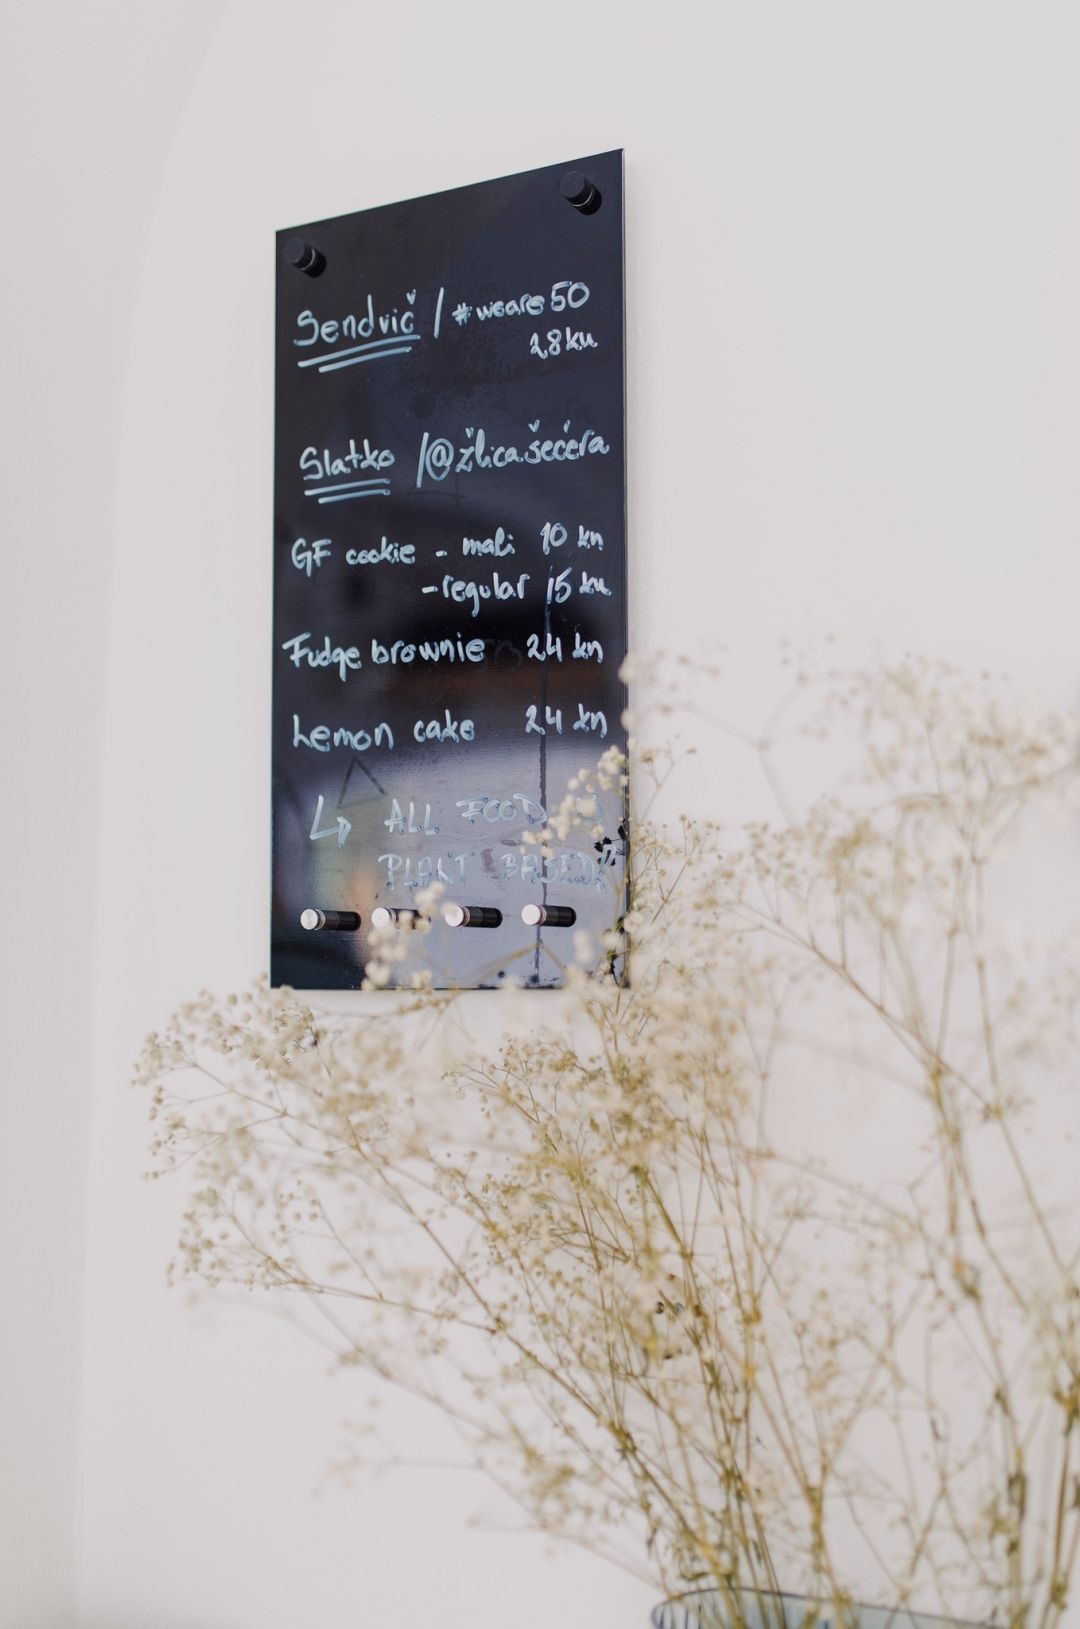 Sendvič / #weare50
28kn
Slatko / @žlicašećera
GF cookie - mali 10 kn
- regular 15 kn
Fudge brownie 24 kn
Lemon cake 24 kn
↳ ALL FOOD IS
PLANT BASED!